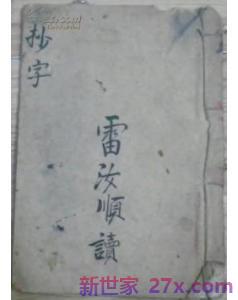 抄字
雷汝順讀
新世家 27x.com